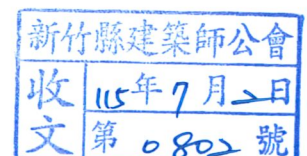 新竹縣建築師公會
收文 115年7月2日
第0802號